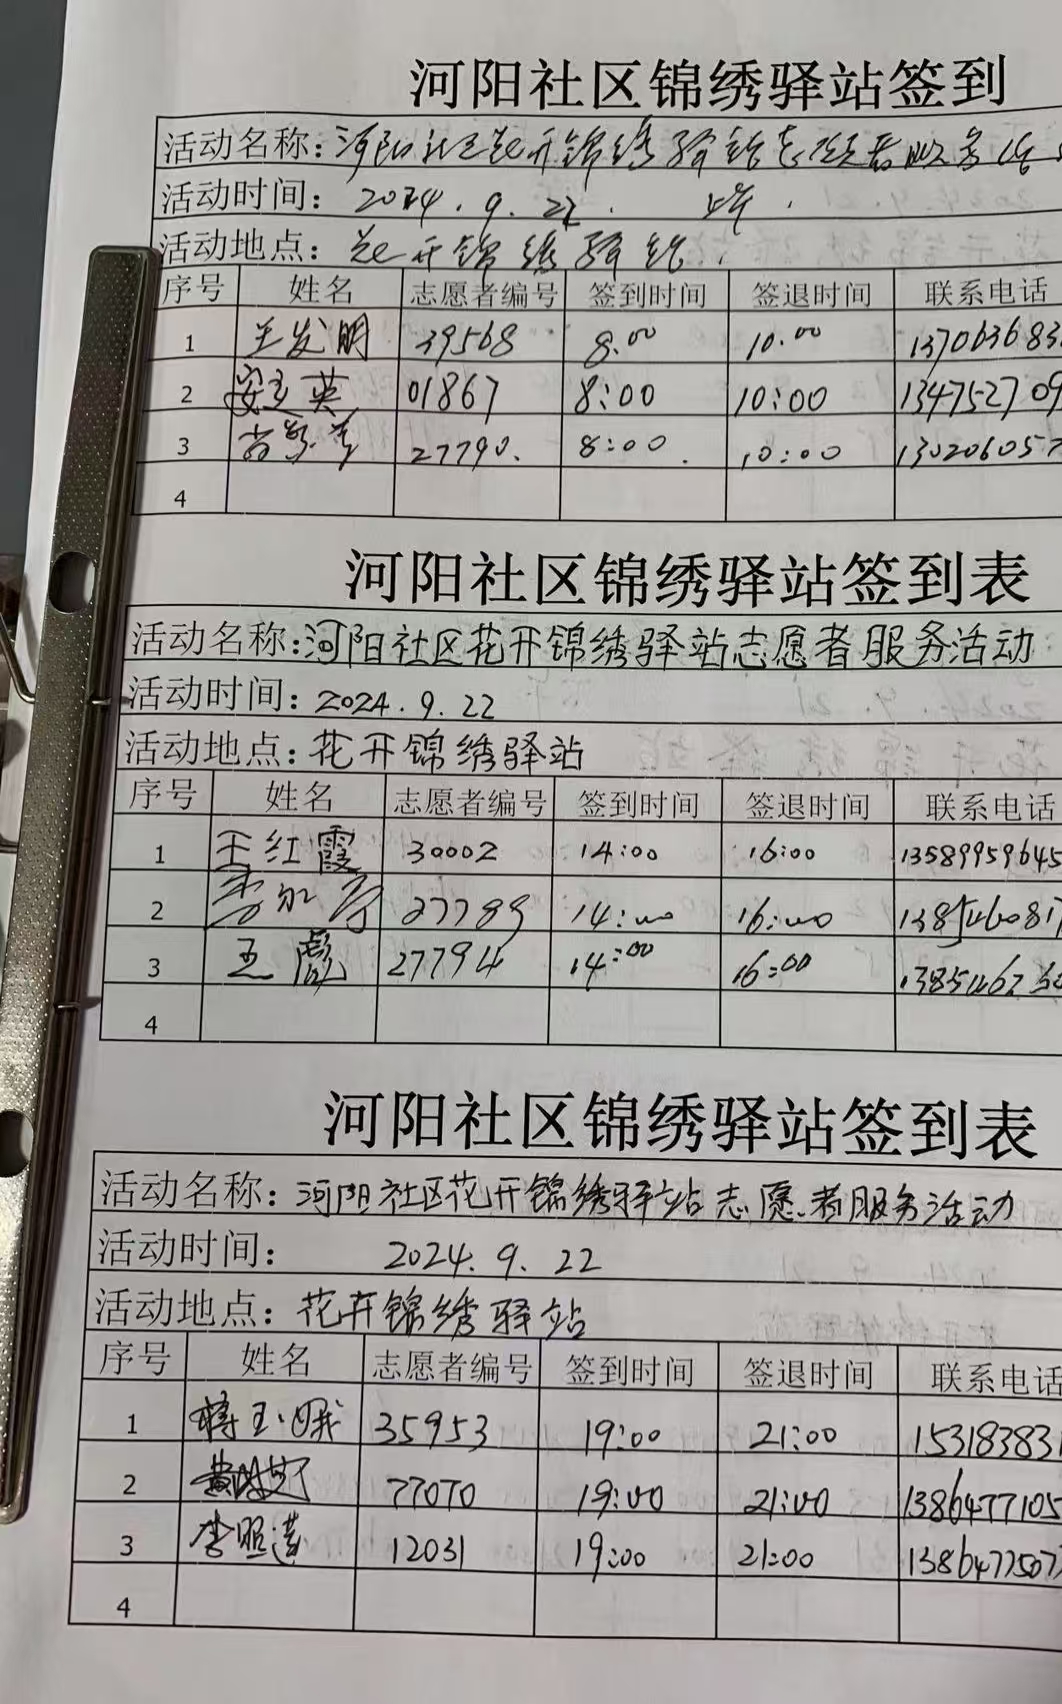 河阳社区锦绣驿站签到
活动名称：河阳社区花开锦绣驿站志愿者服务活
活动时间：2024.9.22.
活动地点：花开锦绣驿站.
序号 姓名 志愿者编号 签到时间 签退时间 联系电话
1 王发明 39568 8:00 10:00 137063683
2 安立英 01867 8:00 10:00 134752709
3 27790. 8:00. 10:00 130206057
4
河阳社区锦绣驿站签到表
活动名称：河阳社区花开锦绣驿站志愿者服务活动
活动时间：2024.9.22
活动地点：花开锦绣驿站
序号 姓名 志愿者编号 签到时间 签退时间 联系电话
1 王红霞 30002 14:00 16:00 13589959645
2 27789 14:00 16:00
3 王彪 27794 14:00 16:00
4
河阳社区锦绣驿站签到表
活动名称：河阳社区花开锦绣驿站志愿者服务活动
活动时间：2024.9.22
活动地点：花开锦绣驿站
序号 姓名 志愿者编号 签到时间 签退时间 联系电话
1 35953 19:00 21:00 15318383
2 77070 19:00 21:00 1386477105
3 李照莲 12031 19:00 21:00 1386477507
4